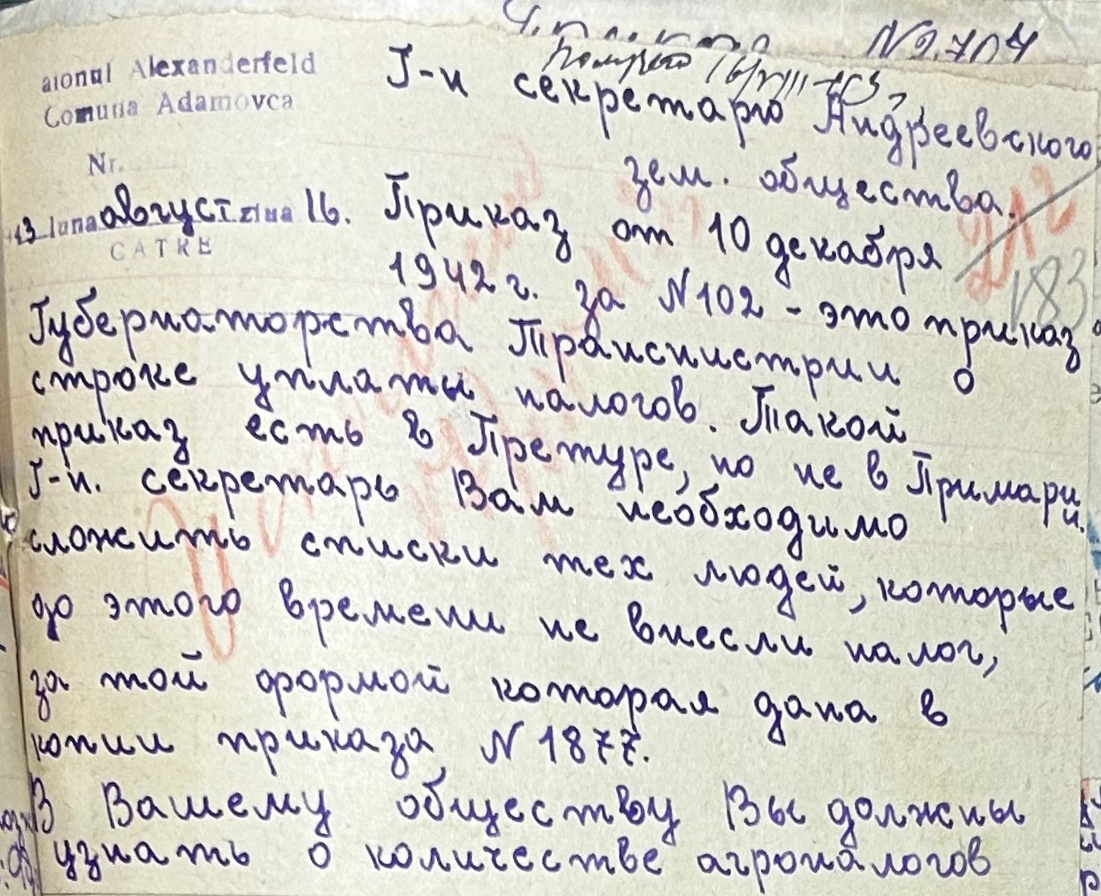 № 704
aionul Alexanderfeld
Comuna Adamovca
Nr.
43 luna август ziua 16.
CATRE
Г-н секретарю Андреевского
зем. общества.
183
Приказ от 10 декабря
1942 г. за N 102 - это приказ
Губернаторства Транснистрии о
строке уплаты налогов. Такой
приказ есть в Претуре, но не в Примарии.
Г-н. секретарь Вам необходимо
сложить списки тех людей, которые
до этого времени не внесли налог,
за той формой которая дана в
копии приказа N 1877.
В Вашему обществу Вы должны
узнать о количестве агроналогов